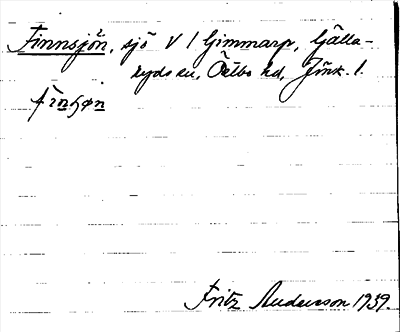 Finnsjön, sjö V / Gimmarp, Gälla-
ryds sn, Östbo hd, Jönk. l.
Fritz Andersson 1939.